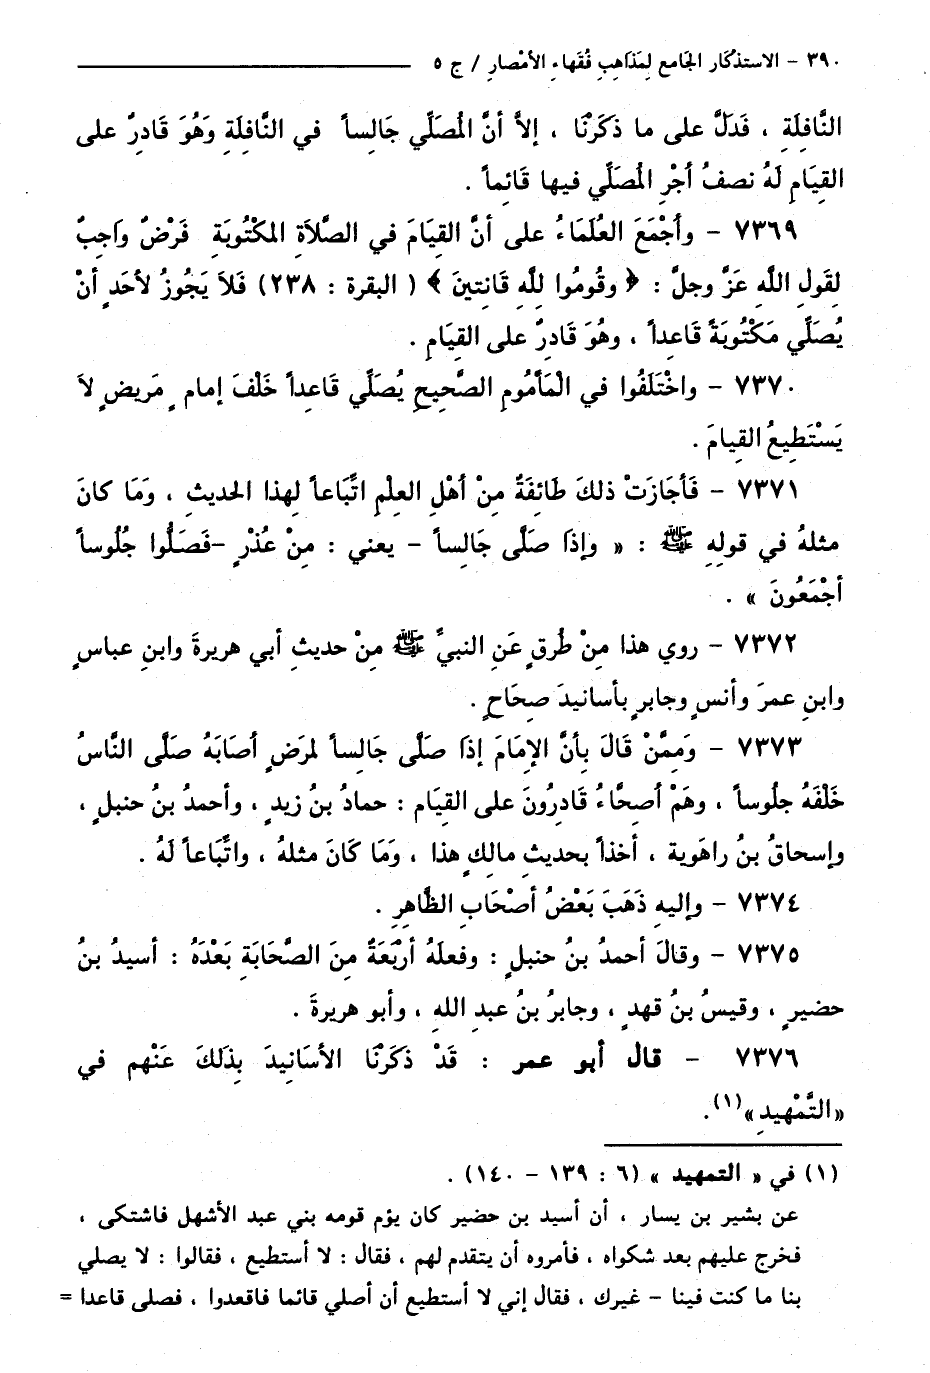 ٣٩٠ - الاستذكار الجامع لمَذَاهِبِ فُقَهاءِ الأمْصارِ / ج ٥
النَّافِلَةِ ، فَدَلَّ على ما ذكَرْنَا ، إلاَّ أنَّ المُصَلِّي جَالِساً في النَّافِلَةِ وَهُوَ قَادِرٌ على
القِيَامِ لَهُ نصفُ أجْرِ المُصَلِّي فيها قَائِماً .
٧٣٦٩ - وأجْمَعَ العُلَمَاءُ على أنَّ القِيَامَ في الصَّلاَةِ المَكْتُوبَةِ فَرْضٌ واَجِبٌ
لِقَولِ اللَّهِ عَزَّ وجلَّ : ﴿ وقُومُوا للَّهِ قَانِتِينَ ﴾ ( البقرة : ٢٣٨) فَلاَ يَجُوزُ لأحَدٍ أنْ
يُصَلِّي مَكْتُوبَةً قَاعِداً ، وهُوَ قَادِرٌ على القِيَامِ .
٧٣٧٠ - واخْتَلَفُوا في الْمَأمُومِ الصَّحِيحِ يُصَلِّي قَاعِداً خَلْفَ إمامٍ مَريضٍ لاَ
يَسْتَطِيعُ القِيامَ .
٧٣٧١ - فَأجَازَتْ ذلكَ طَائِفَةٌ مِنْ أهْلِ العِلْمِ اتِّبَاعاً لِهذا الحَدِيثِ ، وَمَا كانَ
مثلهُ في قولِهِ ﷺ : « وإذَا صَلَّى جَالِساً - يعني : مِنْ عُذْرٍ -فَصَلُّوا جُلُوساً
أجْمَعُونَ » .
٧٣٧٢ - روي هذا مِنْ طُرقٍ عَنِ النبيِّ ﷺ مِنْ حديثِ أبي هريرةَ وابنِ عباسٍ
وابنِ عمرَ وأنسٍ وجابرٍ بأسانيدَ صِحَاحٍ .
٧٣٧٣ - وَممَّنْ قَالَ بأنَّ الإمَامَ إذَا صَلَّى جَالِساً لمرَضٍ أصَابَهُ صَلَّى النَّاسُ
خَلْفَهُ جلُوساً ، وهَمْ أصحَّاءُ قَادِرُونَ على القِيَام : حمادُ بنُ زيدٍ ، وأحمدُ بنُ حنبلٍ ،
وإسحاقُ بنُ راهَوية ، أخذاً بحديثِ مالكٍ هذا ، وَمَا كَانَ مثلهُ ، واتِّبَاعاً لَهُ .
٧٣٧٤ - وإليه ذَهَبَ بَعْضُ أصْحَابِ الظَّاهِرِ .
٧٣٧٥ - وقالَ أحمدُ بنُ حنبلٍ : وفعلَهُ أرْبَعَةٌ مِنَ الصَّحَابَةِ بَعْدَهُ : أسيدُ بنُ
حضيرٍ ، وقيسُ بنُ قهدٍ ، وجابرُ بنُ عبدِ اللهِ ، وأبو هريرةَ .
٧٣٧٦ - قال أبو عمر : قَدْ ذكَرْنَا الأسَانِيدَ بِذَلكَ عَنْهم في
«التَّمْهِيدِ»(١).
(١) في « التمهيد » (٦ : ١٣٩ - ١٤٠) .
عن بشير بن يسار ، أن أسيد بن حضير كان يؤم قومه بني عبد الأشهل فاشتكى ،
فخرج عليهم بعد شكواه ، فأمروه أن يتقدم لهم ، فقال : لا أستطيع ، فقالوا : لا يصلي
بنا ما كنت فينا - غيرك ، فقال إني لا أستطيع أن أصلي قائما فاقعدوا ، فصلى قاعدا =